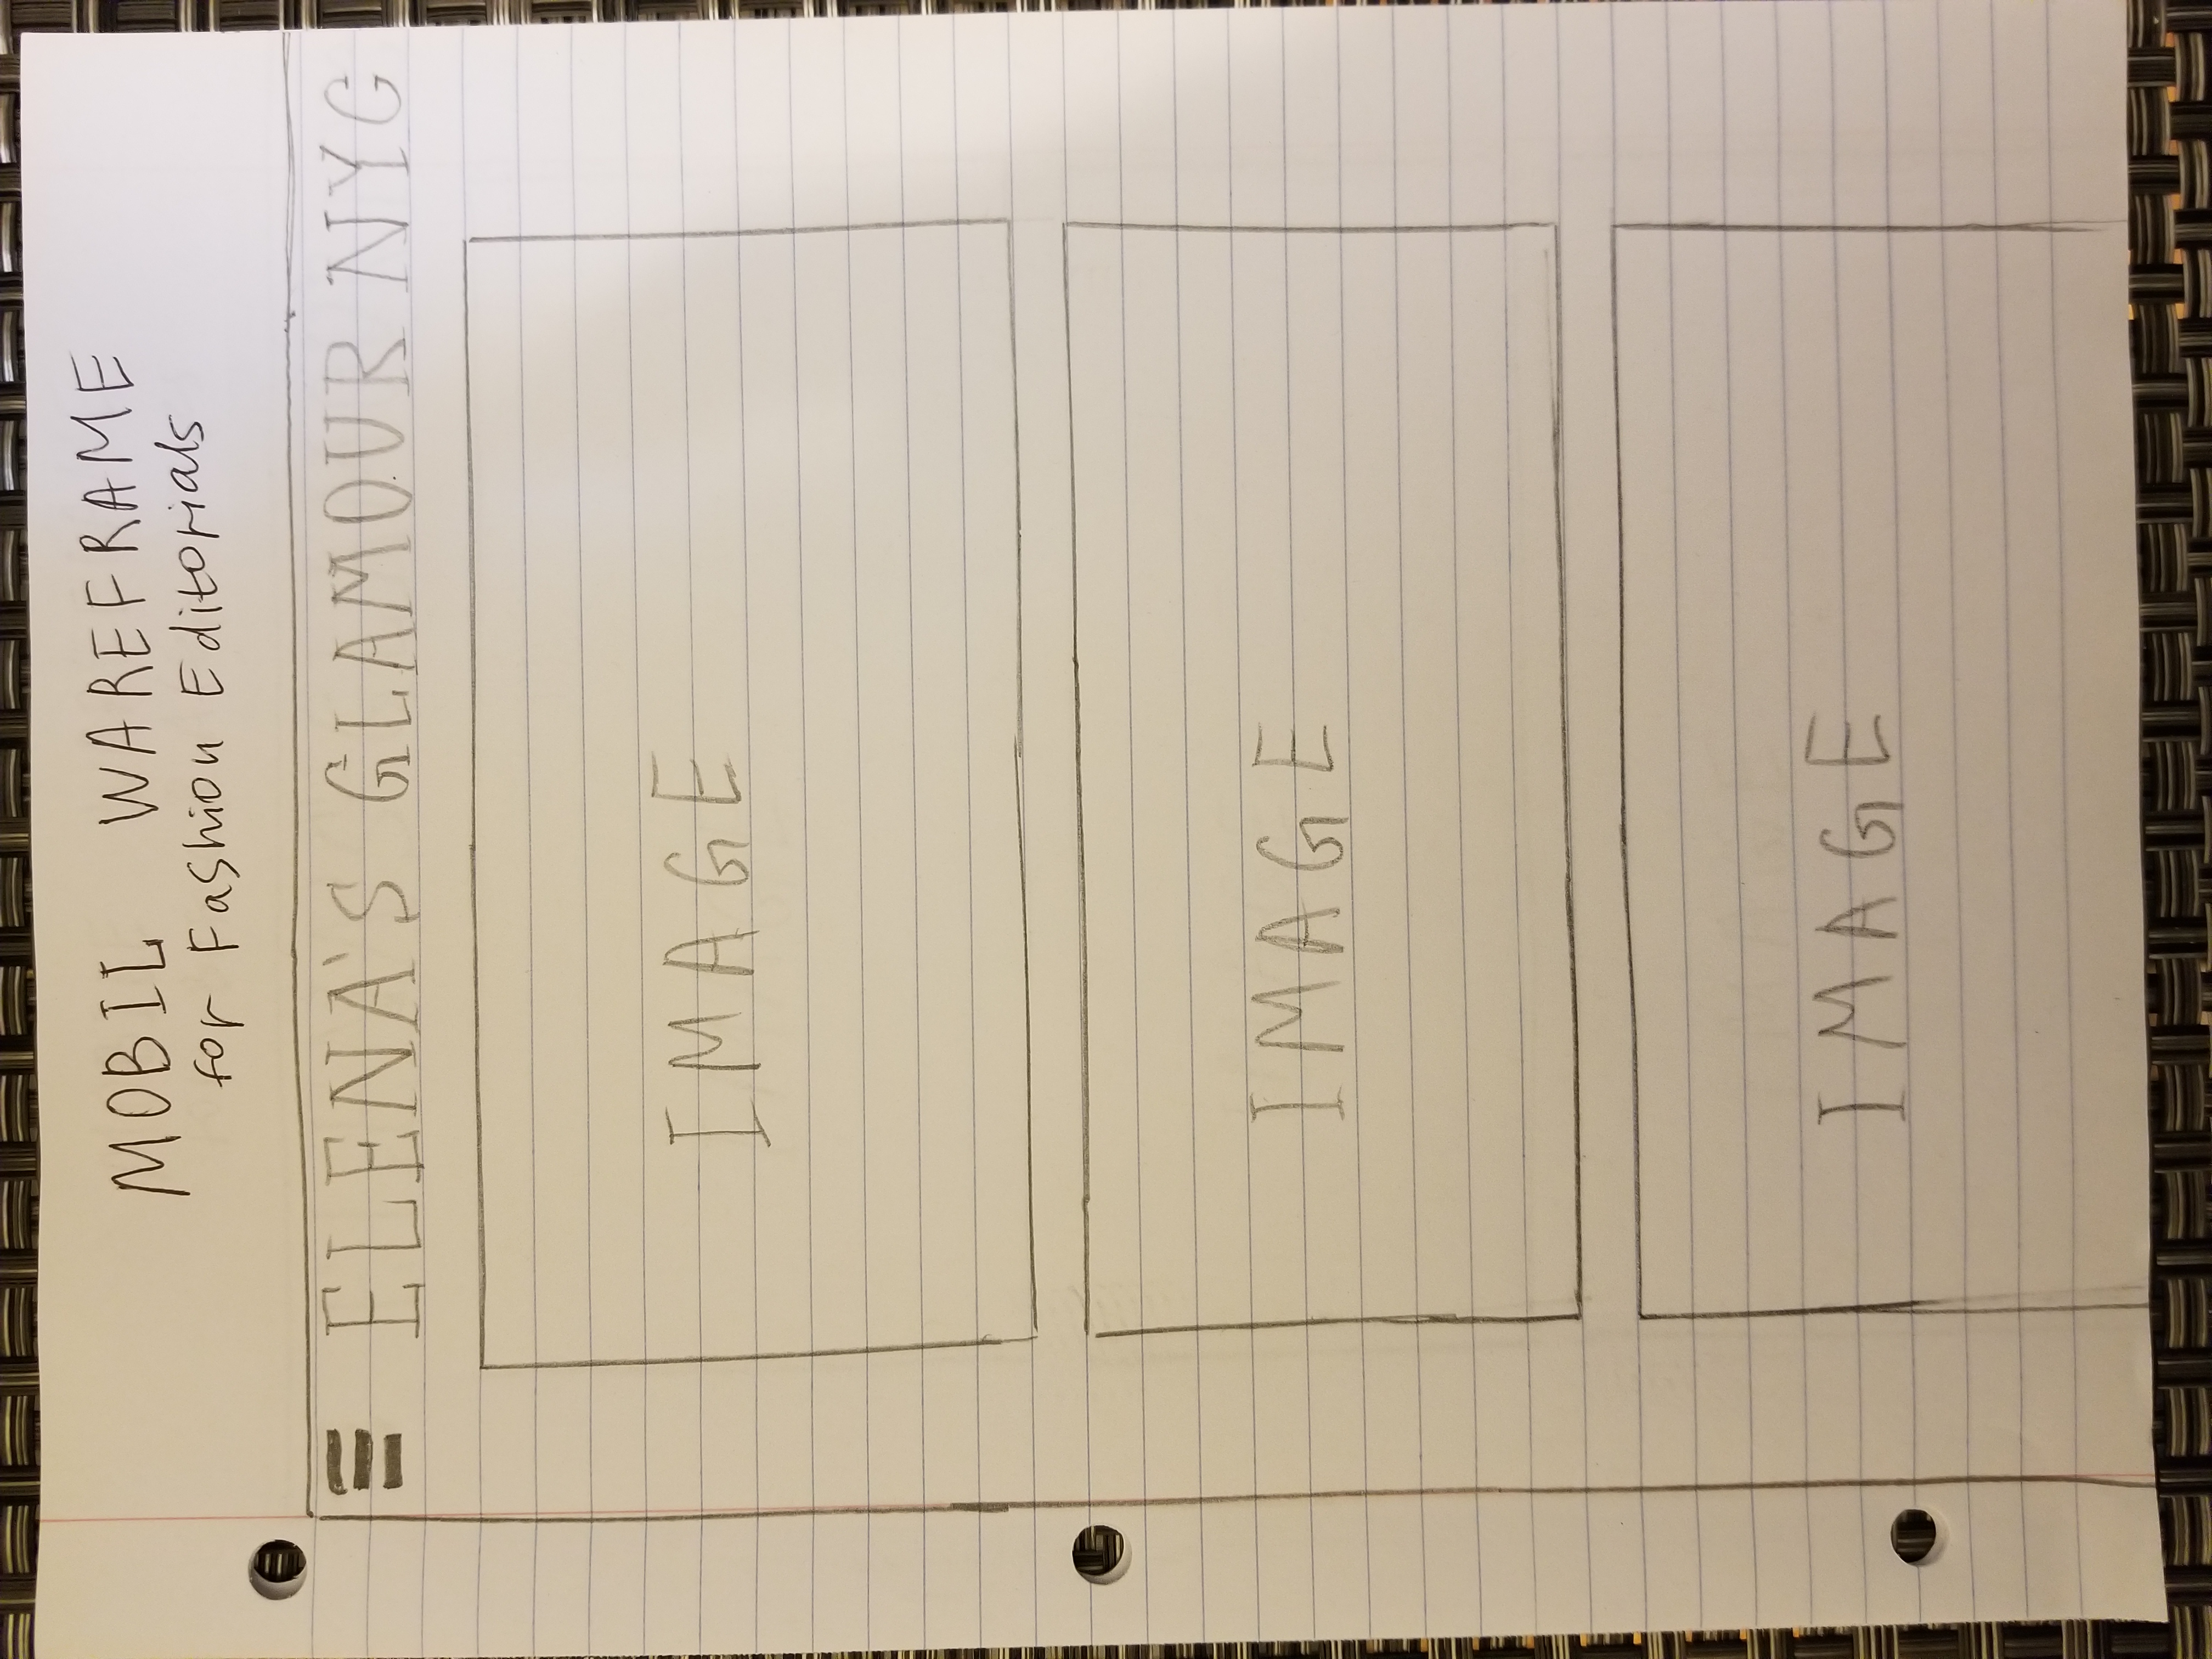 MOBIL WAREFRAME
for Fashion Editorials
ELENA'S GLAMOUR NYC
IMAGE
IMAGE
IMAGE